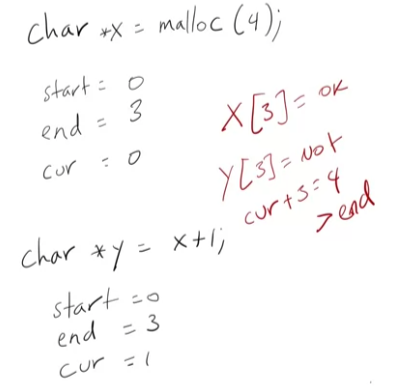 char *x = malloc (4);
start = 0
end = 3
cur = 0
X[3] = OK
Y[3] = Not
cur + 3 = 4
> end
char *y = x+1;
start = 0
end = 3
cur = 1